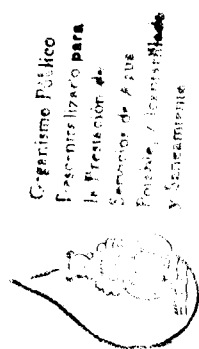 Organismo Público
Descentralizado para
la Prestación de
Servicios de Agua
Potable, Alcantarillado
y Saneamiento